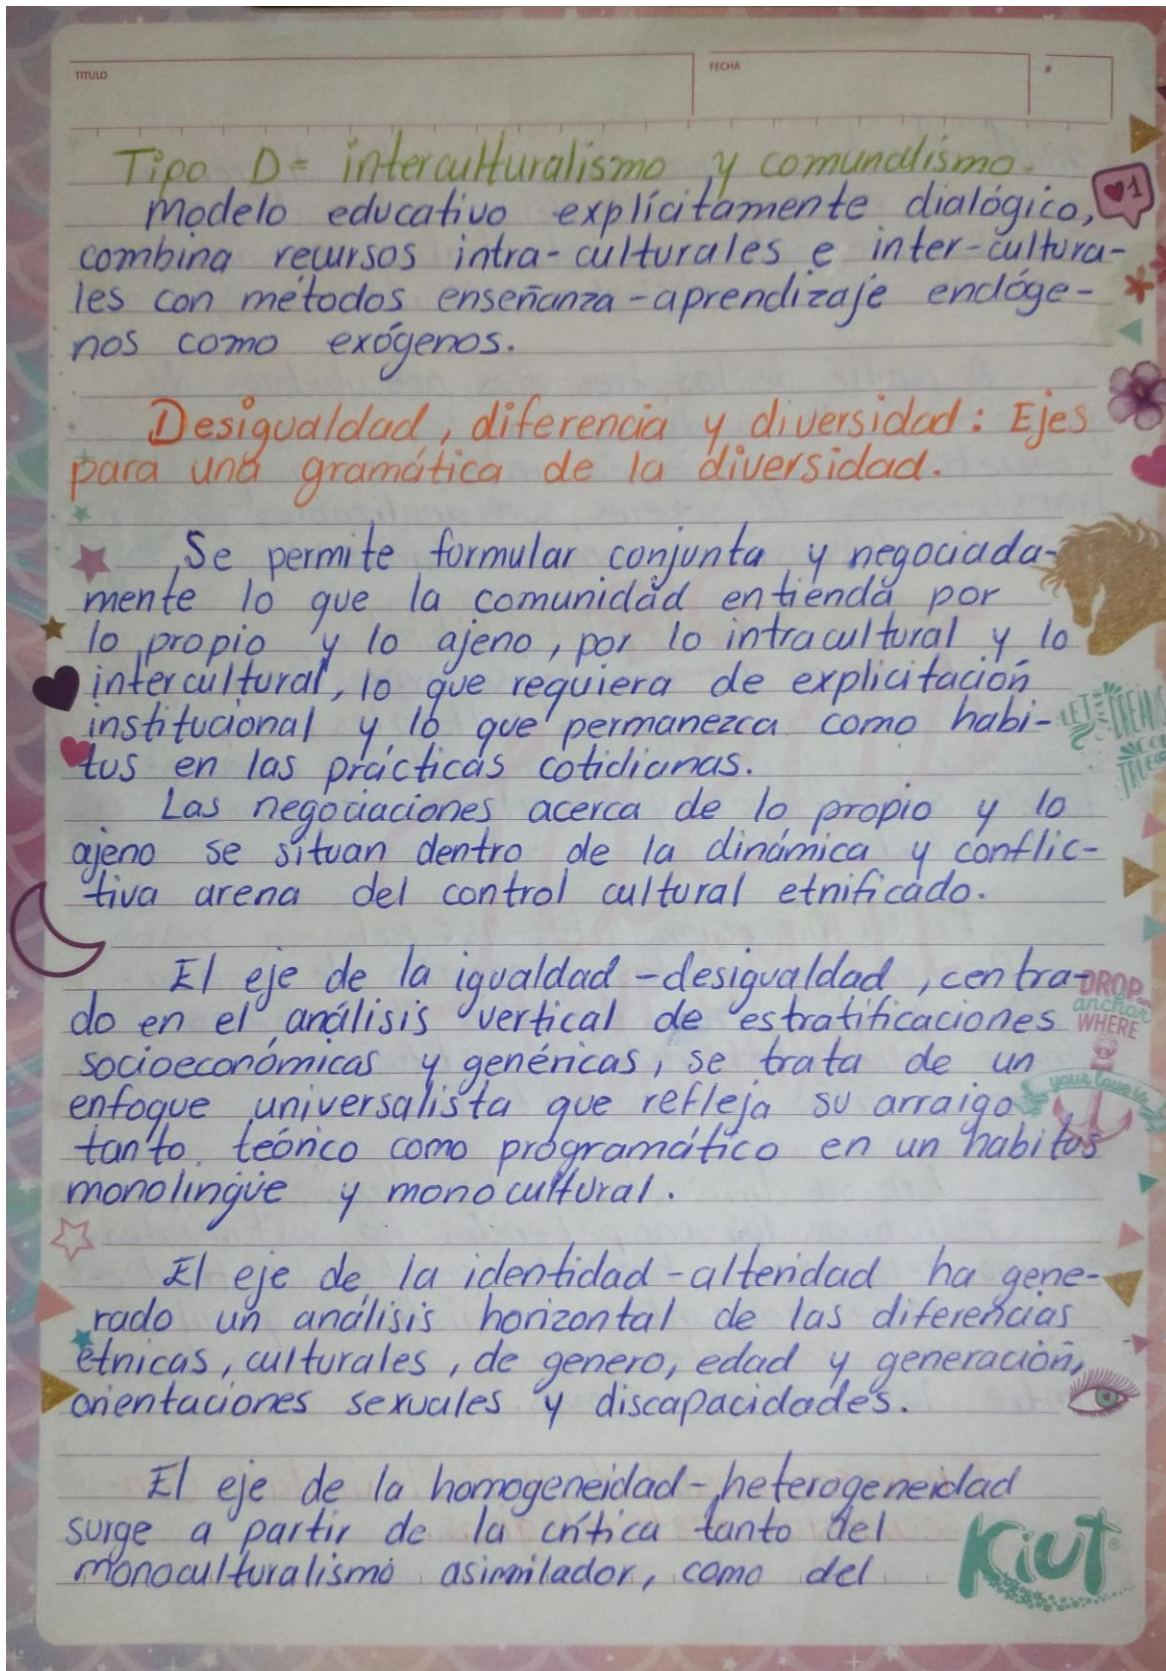 TITULO
FECHA
Tipo D= interculturalismo y comunalismo.
Modelo educativo explícitamente dialógico,
combina recursos intra-culturales e inter-cultura-
les con métodos enseñanza-aprendizaje endóge-
nos como exógenos.
Desigualdad, diferencia y diversidad: Ejes
para una gramática de la diversidad.
Se permite formular conjunta y negociada-
mente lo que la comunidad entienda por
lo propio y lo ajeno, por lo intracultural y lo
intercultural, lo que requiera de explicitación
institucional y lo que permanezca como habi-
tus en las prácticas cotidianas.
Las negociaciones acerca de lo propio y lo
ajeno se situan dentro de la dinámica y conflic-
tiva arena del control cultural etnificado.
El eje de la igualdad-desigualdad, centra-
do en el análisis vertical de estratificaciones
socioeconómicas y genéricas, se trata de un
enfoque universalista que refleja su arraigo
tanto teórico como programático en un habitus
monolingüe y monocultural.
El eje de la identidad-alteridad ha gene-
rado un análisis horizontal de las diferencias
étnicas, culturales, de genero, edad y generación,
orientaciones sexuales y discapacidades.
El eje de la homogeneidad-heterogeneidad
surge a partir de la crítica tanto del
monoculturalismo asimilador, como del
1
LET
DROP
anchor
WHERE
your love is
Kiut